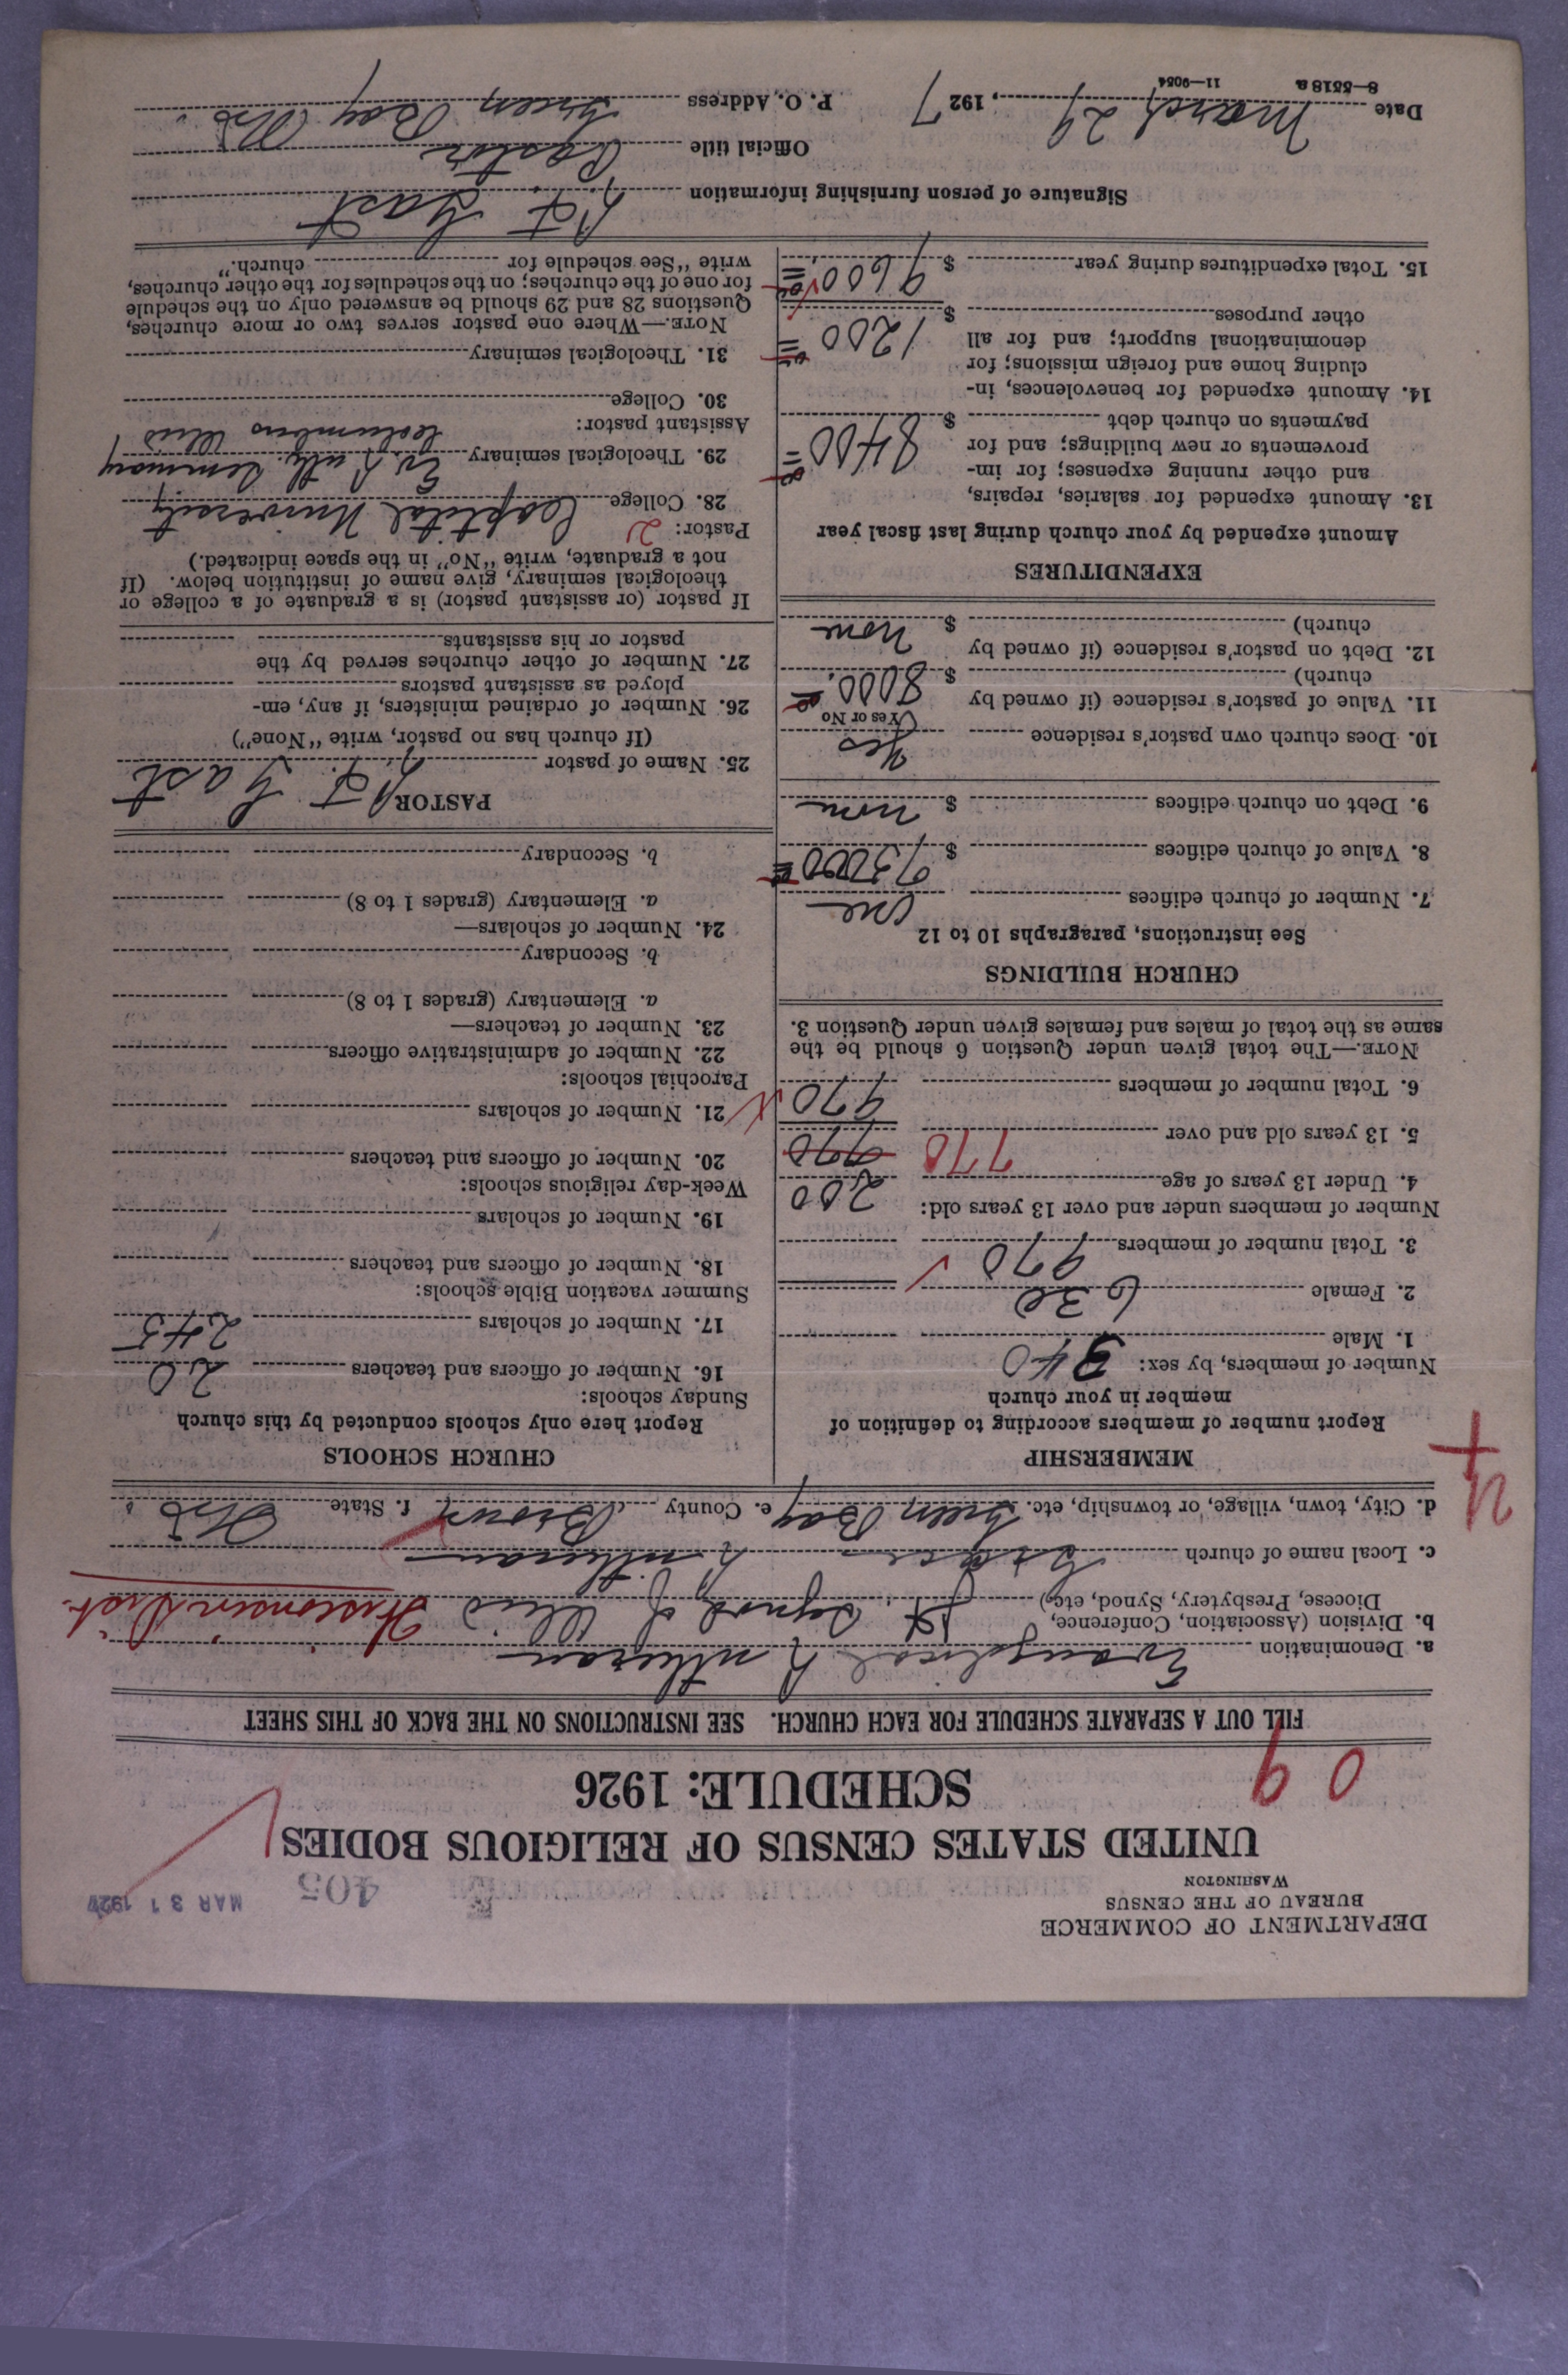 DEPARTMENT OF COMMERCE
BUREAU OF THE CENSUS
WASHINGTON
405
MAR 31 1927
UNITED STATES CENSUS OF RELIGIOUS BODIES
SCHEDULE: 1926
0 9
FILL OUT A SEPARATE SCHEDULE FOR EACH CHURCH. SEE INSTRUCTIONS ON THE BACK OF THIS SHEET
a. Denomination Evangelical Lutheran
b. Division (Association, Conference, Diocese, Presbytery, Synod, etc.) Jt Synod of Ohio Wisconsin Dist.
c. Local name of church Grace Lutheran
d. City, town, village, or township, etc. Green Bay e. County Brown f. State Wis.
MEMBERSHIP
Report number of members according to definition of
member in your church
Number of members, by sex:
1. Male 340
2. Female 630
3. Total number of members 970
Number of members under and over 13 years old:
4. Under 13 years of age 200
5. 13 years old and over 770 970
6. Total number of members 970
NOTE.—The total given under Question 6 should be the
same as the total of males and females given under Question 3.
CHURCH BUILDINGS
See instructions, paragraphs 10 to 12
7. Number of church edifices one
8. Value of church edifices $ 95000
9. Debt on church edifices $ none
10. Does church own pastor's residence Yes
(Yes or No)
11. Value of pastor's residence (if owned by
church) $ 8000.
12. Debt on pastor's residence (if owned by
church) $ none
EXPENDITURES
Amount expended by your church during last fiscal year
13. Amount expended for salaries, repairs,
and other running expenses; for im-
provements or new buildings; and for
payments on church debt $ 8400
14. Amount expended for benevolences, in-
cluding home and foreign missions; for
denominational support; and for all
other purposes $ 1200
15. Total expenditures during year $ 9600
CHURCH SCHOOLS
Report here only schools conducted by this church
Sunday schools:
16. Number of officers and teachers 20
17. Number of scholars 245
Summer vacation Bible schools:
18. Number of officers and teachers
19. Number of scholars
Week-day religious schools:
20. Number of officers and teachers
21. Number of scholars
Parochial schools:
22. Number of administrative officers
23. Number of teachers—
a. Elementary (grades 1 to 8)
b. Secondary
24. Number of scholars—
a. Elementary (grades 1 to 8)
b. Secondary
PASTOR
25. Name of pastor L. F. Gast
(If church has no pastor, write "None")
26. Number of ordained ministers, if any, em-
ployed as assistant pastors
27. Number of other churches served by the
pastor or his assistants
If pastor (or assistant pastor) is a graduate of a college or
theological seminary, give name of institution below. (If
not a graduate, write "No" in the space indicated.)
Pastor: 2
28. College Capital University
29. Theological seminary Ev. Luth. Seminary
Columbus Ohio
Assistant pastor:
30. College
31. Theological seminary
NOTE.—Where one pastor serves two or more churches,
Questions 28 and 29 should be answered only on the schedule
for one of the churches; on the schedules for the other churches,
write "See schedule for church."
Signature of person furnishing information L. F. Gast
Official title Pastor
Date March 29, 1927 P. O. Address Green Bay Wis.
8—5518 a 11—9054